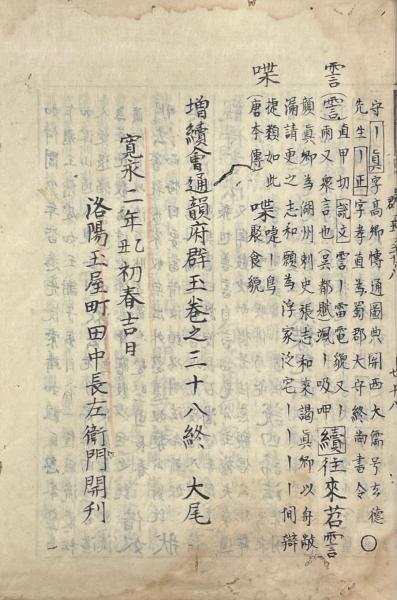 守丨眞字高卿傳通圖典關西大儒号玄德
先生丨正字孝直爲蜀郡大守終尚書令〇
霅 霅直甲切說文霅丨雷電貌又丨
雨又衆言也吴都賦澁丨吸呷續往來苕霅
顔眞卿為湖州刺史張志和來謁眞卿以舟敝
漏請更之志和願為浮家泛宅丨丨丨丨間辯
捷類如此
唐本傳
喋 喋啑丨鳥
聚食貌
増續會通韻府群玉卷之三十八終 大尾
寛永二年乙丑初春吉日
洛陽玉屋町田中長左衛門開刊